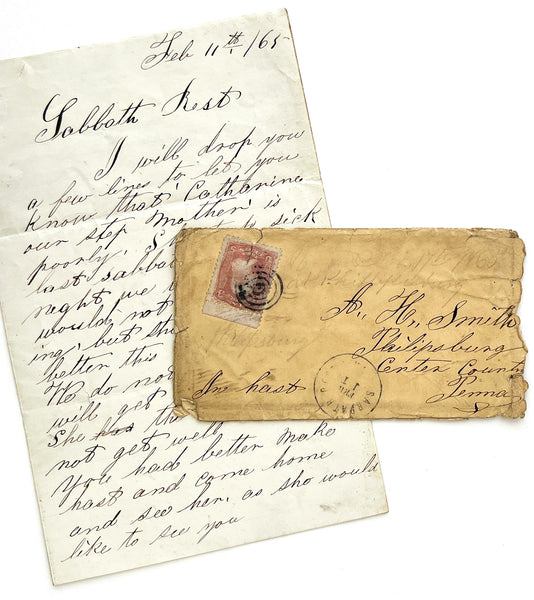 Feb 11th /65
Sabbath Rest
I will drop you
a few lines to let you
know that Catharine
our step Mother is
poorly, sick
last sabbat
night we
would not
ing, but she
better this
He do not
will get
She has th
not get well
You had better make
hast and come home
and see her, as sho would
like to see you
A. H. Smith
Philipsburg
Center Count
Penna
In hast